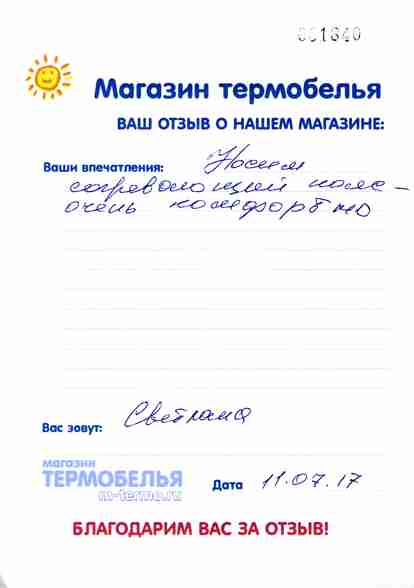 001640
Магазин термобелья
ВАШ ОТЗЫВ О НАШЕМ МАГАЗИНЕ:
Ваши впечатления: Носим
согревающий пояс -
очень комфортно
Вас зовут: Светлана
магазин
ТЕРМОБЕЛЬЯ
m-termo.ru
Дата 11.07.17
БЛАГОДАРИМ ВАС ЗА ОТЗЫВ!